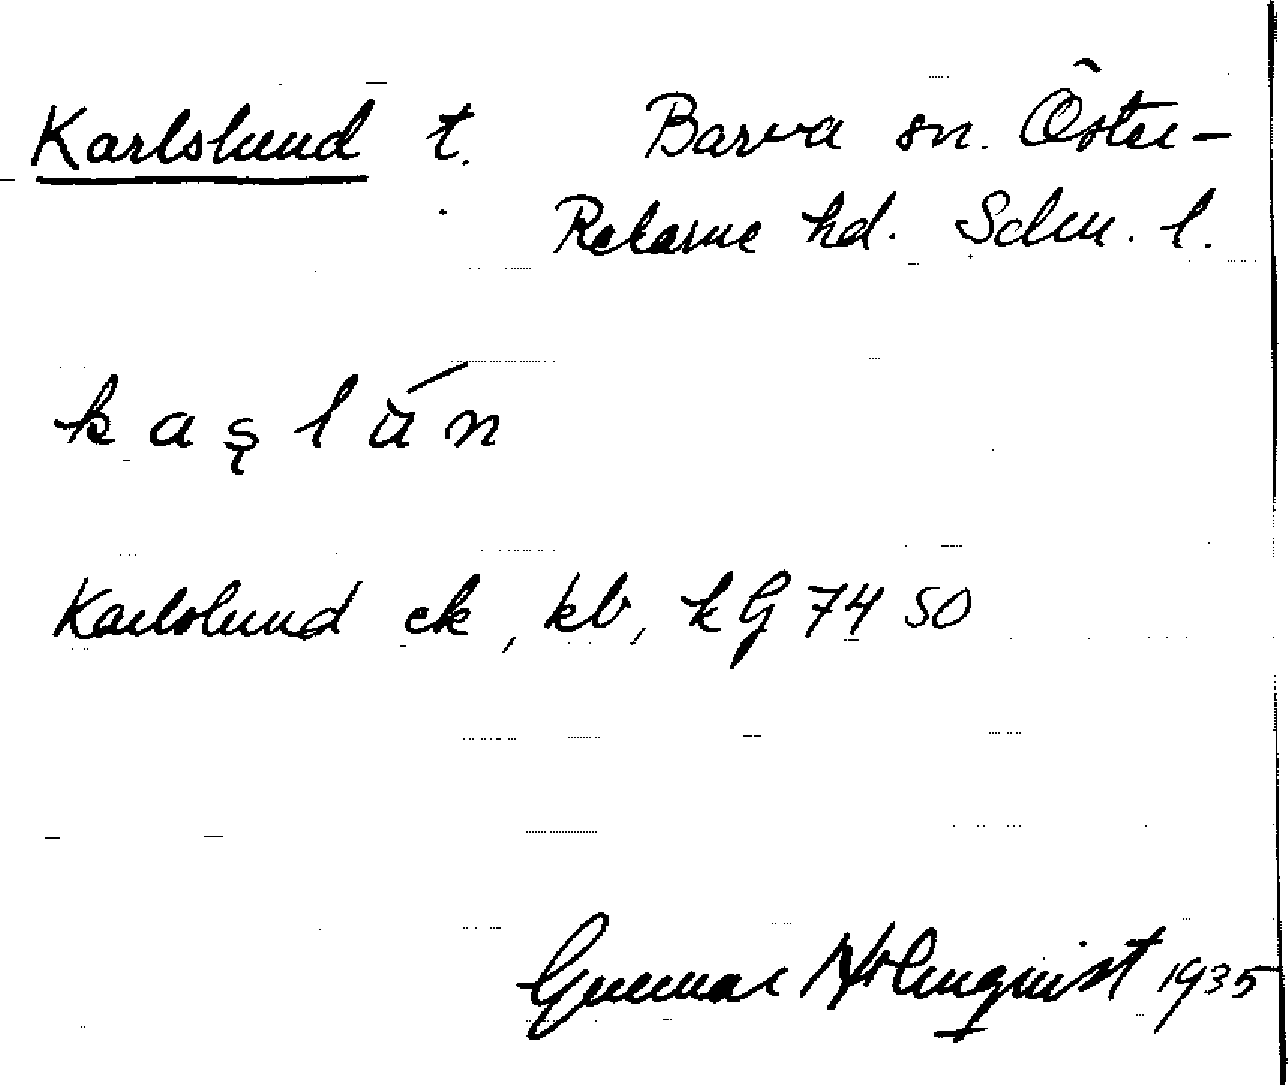 Karlslund t. Barva sn. Öster-
Rekarne hd. Sdm. l.
k a ş l ù́ n
Karlslund ek, kb, kG 74 50
Gunnar Holmquist 1935